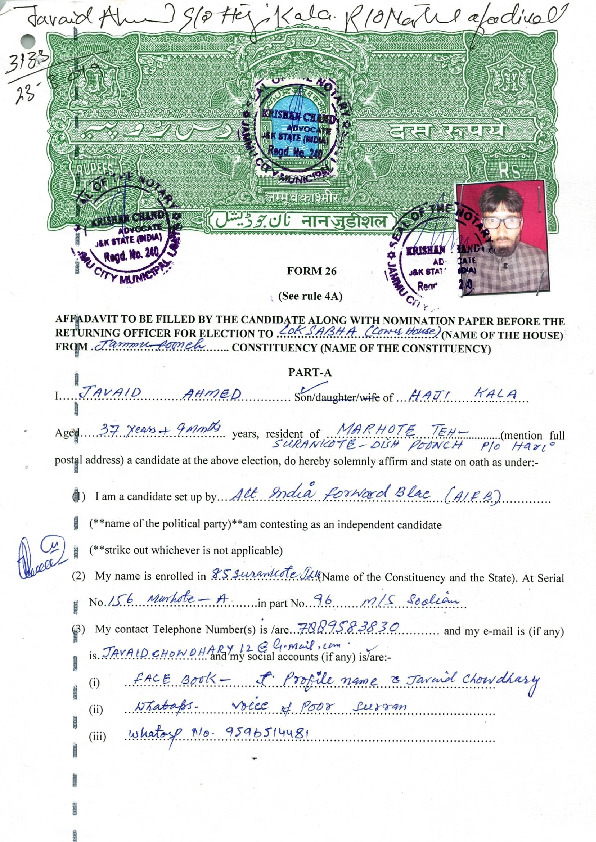 Javaid Ahmed S/o Haji Kala. R/O
3183
23-
दस रूपय
RUPEES
RS
जम्मू व कश्मीर
नान जुडीशल نان جوڈیشل
SEAL OF THE NOTARY
KRISHAN CHAND
ADVOCATE
J&K STATE (INDIA)
Regd. No. 240
JAMMU CITY MUNICIPAL
SEAL OF THE NOTARY
KRISHAN CHAND
ADVOCATE
J&K STATE (INDIA)
Regd. No. 240
JAMMU CITY MUNICIPAL LIMITS
SEAL OF THE NOTARY
KRISHAN CHAND
FORM 26
(See rule 4A)
AFFADAVIT TO BE FILLED BY THE CANDIDATE ALONG WITH NOMINATION PAPER BEFORE THE
RETURNING OFFICER FOR ELECTION TO LOK SABHA (Lower House) (NAME OF THE HOUSE)
FROM Jammu-Poonch CONSTITUENCY (NAME OF THE CONSTITUENCY)
PART-A
I JAVAID AHMED Son/daughter/wife of HAJI KALA
Aged 37 years + 9 months years, resident of MARHOTE TEH- (mention full
SURANKOTE - Distt POONCH P/o Hari
postal address) a candidate at the above election, do hereby solemnly affirm and state on oath as under:-
(1) I am a candidate set up by All India Forward Blac (AIFB)
(**name of the political party)**am contesting as an independent candidate
(**strike out whichever is not applicable)
(2) My name is enrolled in 85 Surankote J&K (Name of the Constituency and the State). At Serial
No. 156 Marhote - A in part No. 96 M/S
(3) My contact Telephone Number(s) is /are 7889583830 and my e-mail is (if any)
is JAVAIDCHOWDHARY12@G-mail.com and my social accounts (if any) is/are:-
(i) FACE BOOK - Profile name Javaid Chowdhary
(ii) Whatsaps- voice of Poor Surran
(iii) Whatosp No. 9596514481